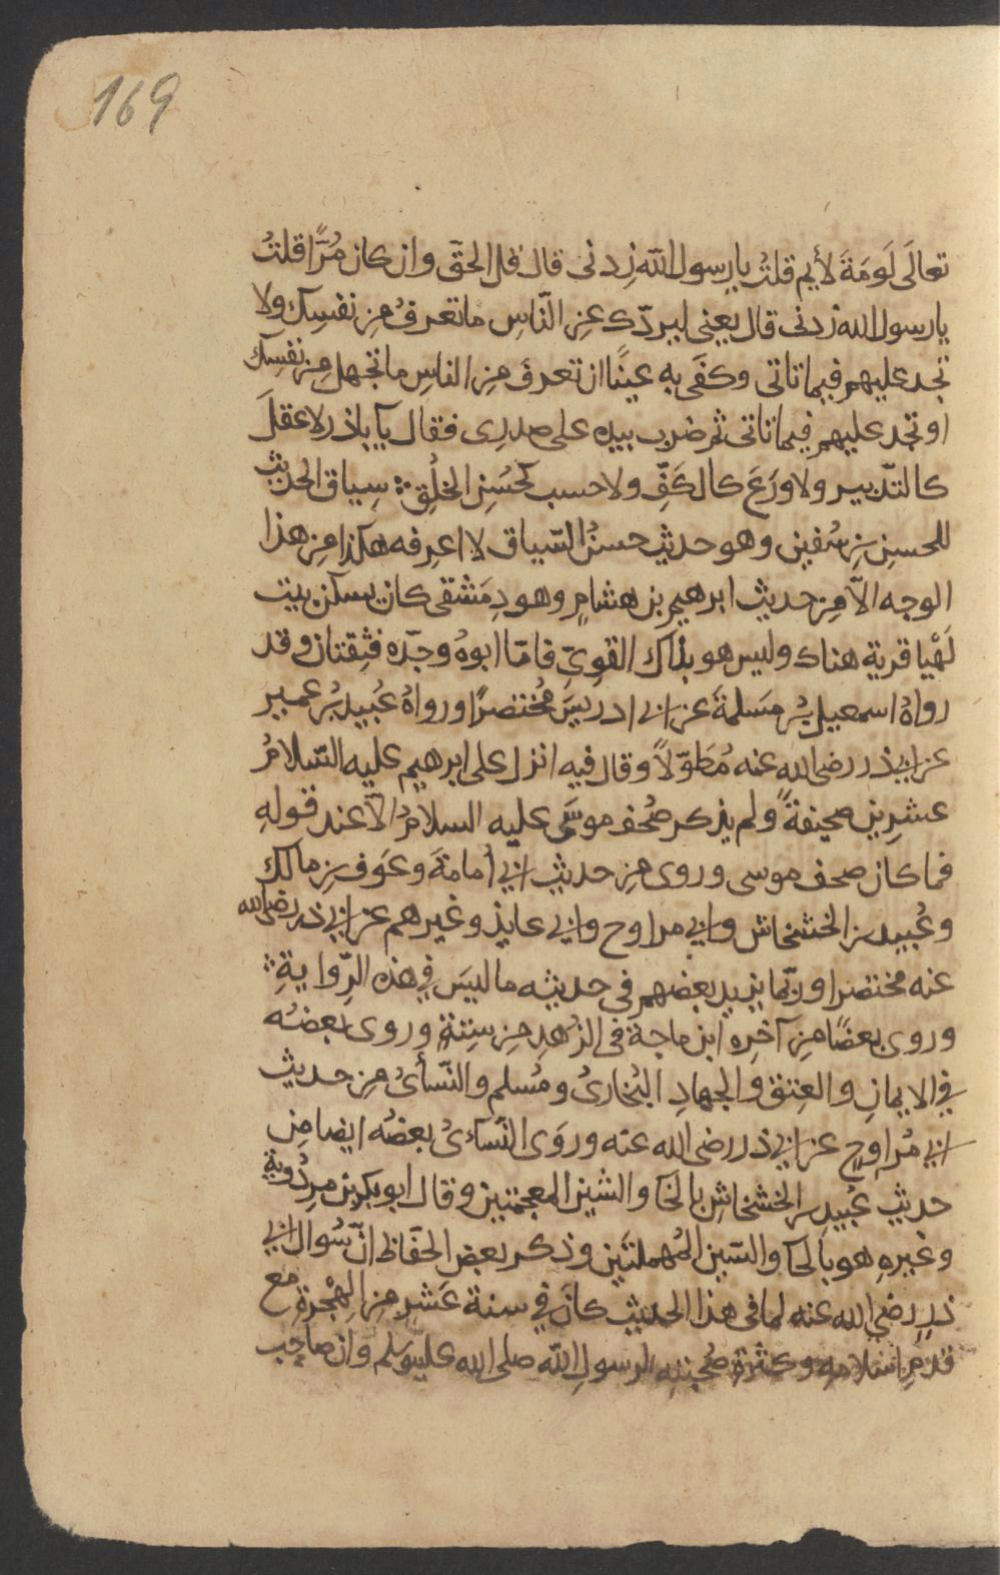 169
تعالَى لَومَةَ لأيم قلتُ يا رسول الله زِدنى قال قل الحقّ وان كان مُرًّا قلتُ
يا رسول الله زدنى قال يعنى ليردّك عن النّاسِ ما تعرفُ من نفسِك ولا
تجد عليهم فيما تاتى وكفَى به عيبًا ان تعرفَ من الناسِ ما تجهل من نفسِك
او تجد عليهم فيما تاتى ثم ضرب بيده على صدرِى فقال يا باذر لا عقلَ
كالتّدبير ولا ورَعَ كالكَفِّ ولا حسب كحُسْنِ الخُلُقِ سِياق الحديث
للحسين بن سُفين وهو حديث حسنُ السّياق لا اعرفه هكذا من هذا
الوجه الّا من حديث ابرهيم بن هشامٍ وهو دِمَشقى كان يسكن بيت
لَهْيا قرية هناك وليس هو بذاك القوِىّ فامّا ابوهُ وجدّه فثِقتان وقد
رواهُ اسمعيل بنُ مَسلمةَ عن ابى ادريسَ مُختصرًا ورواهُ عُبيد بنُ عمير
عن ابى ذر رضى الله عنه مُطَوّلًا وقال فيه انزل على ابرهيم عليه السّلامُ
عشرين صحيفةً ولم يذكر صُحف موسَى عليه السلامُ الّا عند قولهِ
فما كان صحف موسى وروى من حديث ابى أُمامةَ وعَوف بن مالك
وعُبيد بن الخشخاش وابى مراوح وابى عايذ وغيرهم عن ابى ذر رضى الله
عنه مختصرا وربّما يزيد بعضهم فى حديثه ما ليسَ فى هذه الرّوايةِ
وروى بعضًا من آخرِه ابن ماجة فى الزُهدِ من سننةٍ وروى بعضُه
في الايمانِ والعِتق والجهادِ البُخارىُ ومُسلم والنّسأىُ من حديث
ابى مُراوحٍ عن ابى ذر رضى الله عنه وروَى النّسآئىُ بعضُه ايضا من
حديث عُبيدِ بن الخشخاشِ بالخا والشين المعجمتين وقال ابو بكر بن مردُوية
وغيرهِ هو بالحا والسّين المُهملتَين وذكر بعض الحفّاظ انّ سُوال ابى
ذرٍ رضى الله عنه لما فى هذا الحديث كانَ فى سنة عَشرٍ من الهِجْرةِ مع
قدمِ اسلامِهِ وكثرةِ صُحبتهِ لرسولِ الله صلى الله عليه وسلم وان صاحِب